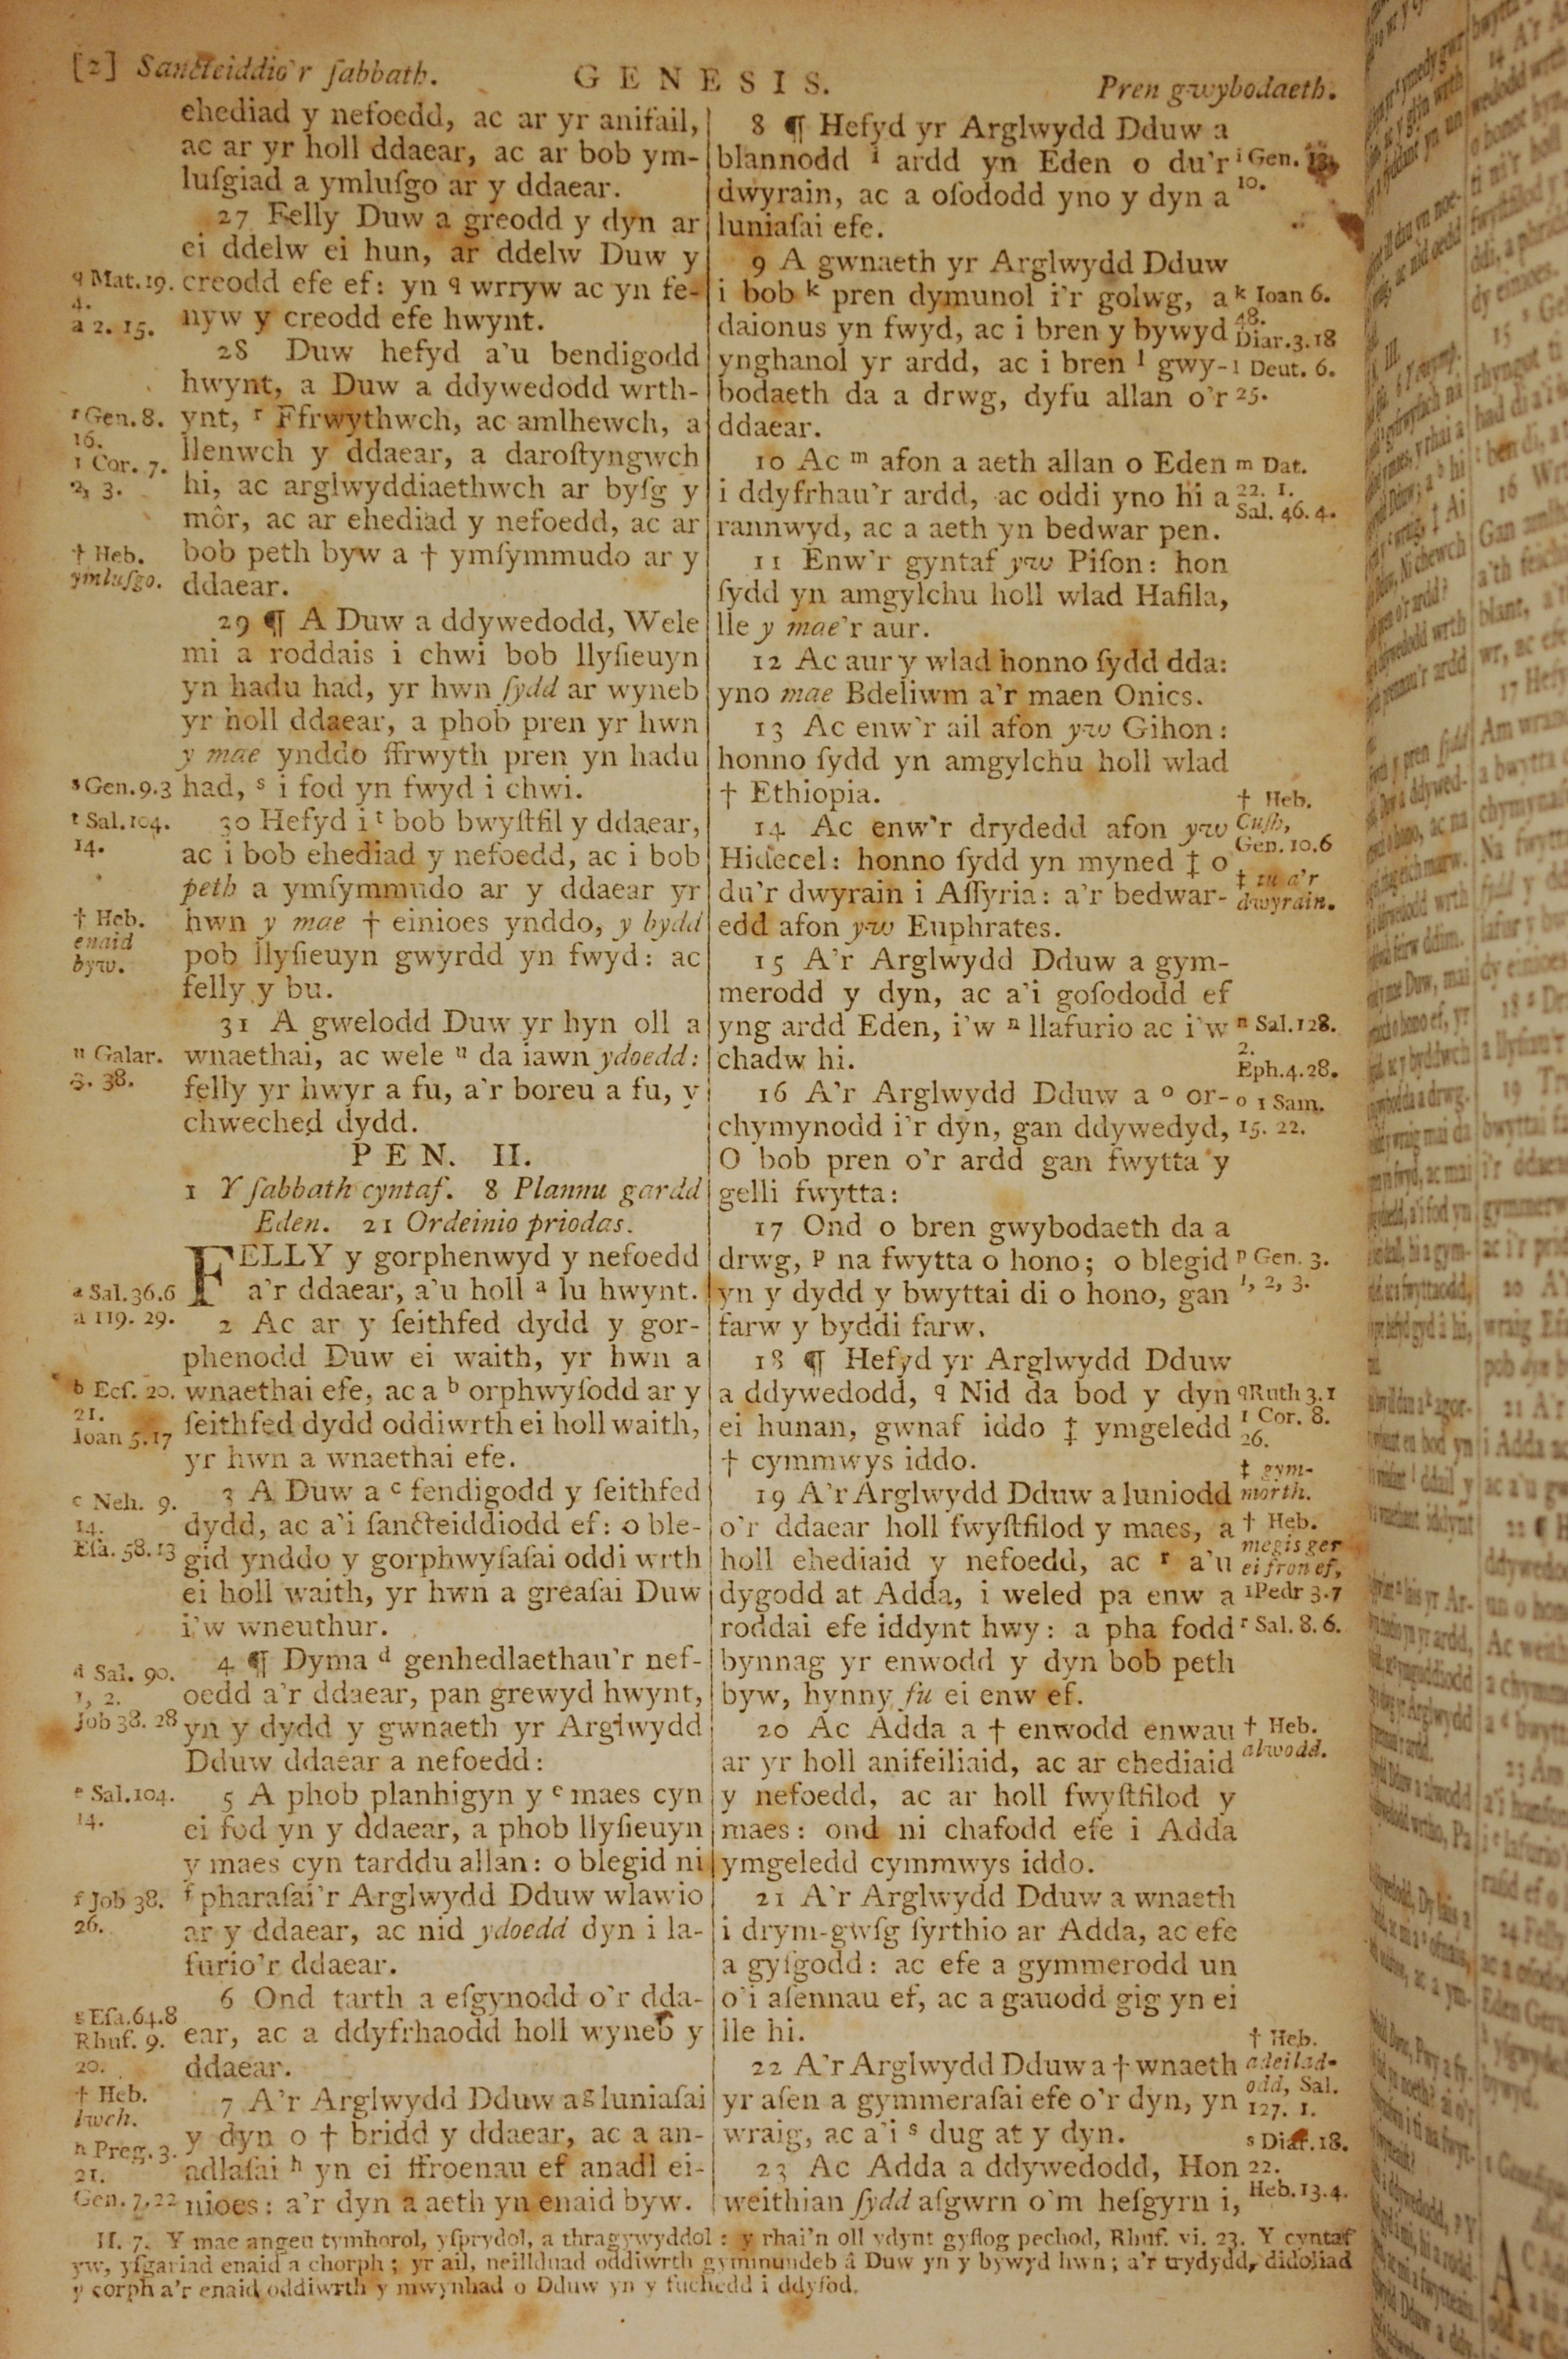 [2] Sancteiddio'r ſabbath.
GENESIS.
Pren gwybodaeth.
ehediad y nefoedd, ac ar yr anifail,
ac ar yr holl ddaear, ac ar bob ym-
luſgiad a ymluſgo ar y ddaear.
27 Felly Duw a greodd y dyn ar
ei ddelw ei hun, ar ddelw Duw y
creodd efe ef: yn q wrryw ac yn fe-
nyw y creodd efe hwynt.
28 Duw hefyd a'u bendigodd
hwynt, a Duw a ddywedodd wrth-
ynt, r Ffrwythwch, ac amlhewch, a
llenwch y ddaear, a daroſtyngwch
hi, ac arglwyddiaethwch ar byſg y
môr, ac ar ehediad y nefoedd, ac ar
bob peth byw a † ymſymmudo ar y
ddaear.
29 ¶ A Duw a ddywedodd, Wele
mi a roddais i chwi bob llyſieuyn
yn hadu had, yr hwn ſydd ar wyneb
yr holl ddaear, a phob pren yr hwn
y mae ynddo ffrwyth pren yn hadu
had, s i fod yn fwyd i chwi.
30 Hefyd i t bob bwyſtfil y ddaear,
ac i bob ehediad y nefoedd, ac i bob
peth a ymſymmudo ar y ddaear yr
hwn y mae † einioes ynddo, y bydd
pob llyſieuyn gwyrdd yn fwyd: ac
felly y bu.
31 A gwelodd Duw yr hyn oll a
wnaethai, ac wele u da iawn ydoedd:
felly yr hwyr a fu, a'r boreu a fu, y
chweched dydd.
PEN. II.
1 Y ſabbath cyntaf. 8 Plannu gardd
Eden. 21 Ordeinio priodas.
FELLY y gorphenwyd y nefoedd
a'r ddaear, a'u holl a lu hwynt.
2 Ac ar y ſeithfed dydd y gor-
phenodd Duw ei waith, yr hwn a
wnaethai efe, ac a b orphwyſodd ar y
ſeithfed dydd oddiwrth ei holl waith,
yr hwn a wnaethai efe.
3 A Duw a c fendigodd y ſeithfed
dydd, ac a'i ſancteiddiodd ef: o ble-
gid ynddo y gorphwyſaſai oddi wrth
ei holl waith, yr hwn a greaſai Duw
i'w wneuthur.
4 ¶ Dyma d genhedlaethau'r nef-
oedd a'r ddaear, pan grewyd hwynt,
yn y dydd y gwnaeth yr Arglwydd
Dduw ddaear a nefoedd:
5 A phob planhigyn y e maes cyn
ei fod yn y ddaear, a phob llyſieuyn
y maes cyn tarddu allan: o blegid ni
f pharaſai'r Arglwydd Dduw wlawio
ar y ddaear, ac nid ydoedd dyn i la-
furio'r ddaear.
6 Ond tarth a eſgynodd o'r dda-
ear, ac a ddyfrhaodd holl wyneb y
ddaear.
7 A'r Arglwydd Dduw a g luniaſai
y dyn o † bridd y ddaear, ac a an-
adlaſai h yn ei ffroenau ef anadl ei-
nioes: a'r dyn a aeth yn enaid byw.
q Mat. 19.
4.
a 2. 15.
r Gen. 8.
16.
1 Cor. 7.
2, 3.
† Heb.
ymluſgo.
s Gen. 9. 3
t Sal. 104.
14.
† Heb.
enaid
byw.
u Galar.
3. 38.
a Sal. 36. 6
a 119. 29.
b Ecſ. 20.
21.
Ioan 5. 17
c Neh. 9.
14.
Eſa. 58. 13
d Sal. 90.
1, 2.
Job 38. 28
e Sal. 104.
14.
f Job 38.
26.
g Eſa. 64. 8
Rhuf. 9.
20.
† Heb.
lwch.
h Preg. 3.
21.
Gen. 7. 22
8 ¶ Hefyd yr Arglwydd Dduw a
blannodd i ardd yn Eden o du'r
dwyrain, ac a oſododd yno y dyn a
luniaſai efe.
9 A gwnaeth yr Arglwydd Dduw
i bob k pren dymunol i'r golwg, a
daionus yn fwyd, ac i bren y bywyd
ynghanol yr ardd, ac i bren l gwy-
bodaeth da a drwg, dyfu allan o'r
ddaear.
10 Ac m afon a aeth allan o Eden
i ddyfrhau'r ardd, ac oddi yno hi a
rannwyd, ac a aeth yn bedwar pen.
11 Enw'r gyntaf yw Piſon: hon
ſydd yn amgylchu holl wlad Hafila,
lle y mae'r aur.
12 Ac aur y wlad honno ſydd dda:
yno mae Bdeliwm a'r maen Onics.
13 Ac enw'r ail afon yw Gihon:
honno ſydd yn amgylchu holl wlad
† Ethiopia.
14 Ac enw'r drydedd afon yw
Hidecel: honno ſydd yn myned ‡ o
du'r dwyrain i Aſſyria: a'r bedwar-
edd afon yw Euphrates.
15 A'r Arglwydd Dduw a gym-
merodd y dyn, ac a'i goſododd ef
yng ardd Eden, i'w n llafurio ac i'w
chadw hi.
16 A'r Arglwydd Dduw a o or-
chymynodd i'r dyn, gan ddywedyd,
O bob pren o'r ardd gan fwytta y
gelli fwytta:
17 Ond o bren gwybodaeth da a
drwg, p na fwytta o hono; o blegid
yn y dydd y bwyttai di o hono, gan
farw y byddi farw.
18 ¶ Hefyd yr Arglwydd Dduw
a ddywedodd, q Nid da bod y dyn
ei hunan, gwnaf iddo ‡ ymgeledd
† cymmwys iddo.
19 A'r Arglwydd Dduw a luniodd
o'r ddaear holl fwyſtfilod y maes, a
holl ehediaid y nefoedd, ac r a'u
dygodd at Adda, i weled pa enw a
roddai efe iddynt hwy: a pha fodd
bynnag yr enwodd y dyn bob peth
byw, hynny fu ei enw ef.
20 Ac Adda a † enwodd enwau
ar yr holl anifeiliaid, ac ar ehediaid
y nefoedd, ac ar holl fwyſtfilod y
maes: ond ni chafodd efe i Adda
ymgeledd cymmwys iddo.
21 A'r Arglwydd Dduw a wnaeth
i drym-gwſg ſyrthio ar Adda, ac efe
a gyſgodd: ac efe a gymmerodd un
o'i aſennau ef, ac a gauodd gig yn ei
lle hi.
22 A'r Arglwydd Dduw a † wnaeth
yr aſen a gymmeraſai efe o'r dyn, yn
wraig, ac a'i s dug at y dyn.
23 Ac Adda a ddywedodd, Hon
weithian ſydd aſgwrn o'm heſgyrn i,
i Gen. 13.
10.
k Ioan 6.
48.
Diar. 3. 18
l Deut. 6.
25.
m Dat.
22. 1.
Sal. 46. 4.
† Heb.
Cuſh,
Gen. 10. 6
‡ tu a'r
dwyrain.
n Sal. 128.
2.
Eph. 4. 28.
o 1 Sam.
15. 22.
p Gen. 3.
1, 2, 3.
q Ruth 3. 1
1 Cor. 8.
26.
‡ gym-
morth.
† Heb.
megis ger
ei fron ef,
1 Pedr 3. 7
r Sal. 8. 6.
† Heb.
alwodd.
† Heb.
adeilad-
odd, Sal.
127. 1.
s Diar. 18.
22.
Heb. 13. 4.
II. 7. Y mae angeu tymhorol, yſprydol, a thragywyddol: y rhai'n oll ydynt gyflog pechod, Rhuf. vi. 23. Y cyntaf
yw, yſgariad enaid a chorph; yr ail, neillduad oddiwrth gymmundeb â Duw yn y bywyd hwn; a'r trydydd, didoliad
y corph a'r enaid oddiwrth y mwynhad o Dduw yn y fuchedd i ddyfod.